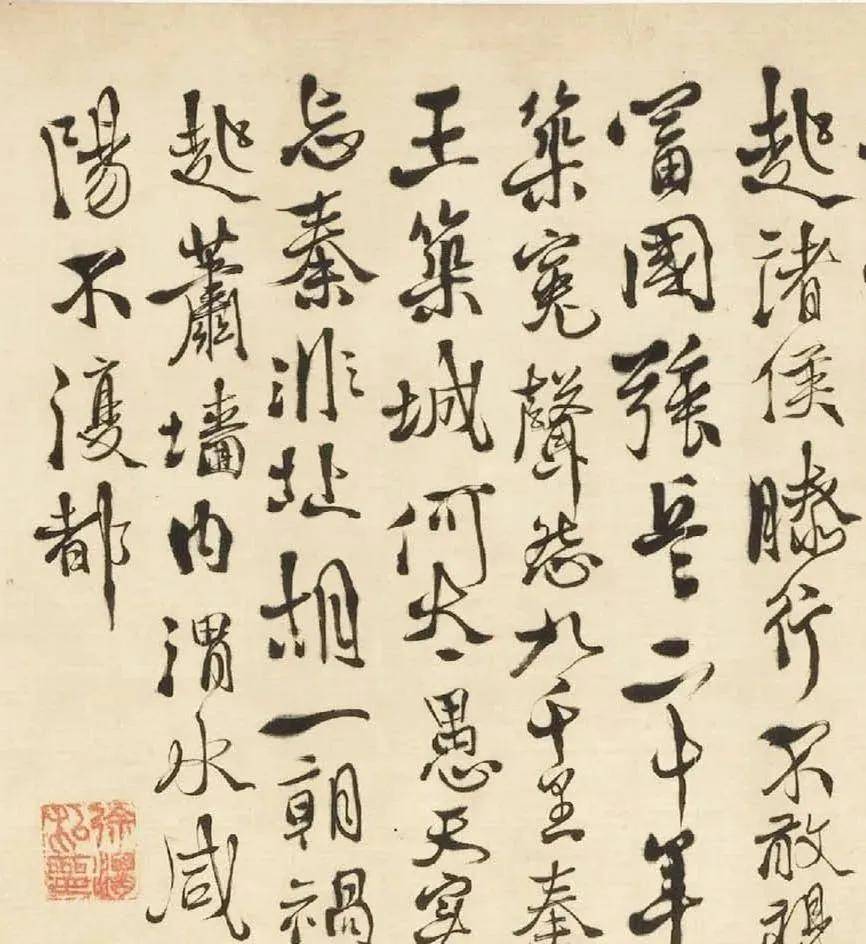 起諸侯膝行不敢視
富國强兵二十年
築冤聲九千里秦
王築城何太愚天實
忘秦非北胡一朝禍
起蕭墻內渭水咸
陽不復都